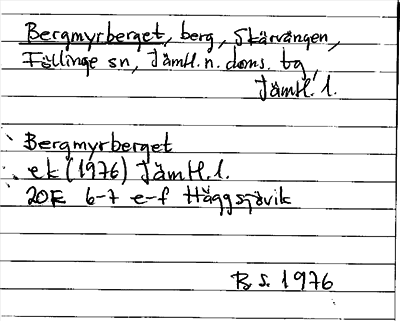 Bergmyrberget, berg, Skärvången,
Föllinge sn, Jämtl. n. doms. tg,
Jämtl. l.
Bergmyrberget
ek (1976) Jämtl. l.
20E 6-7 e-f Häggsjövik
B S. 1976